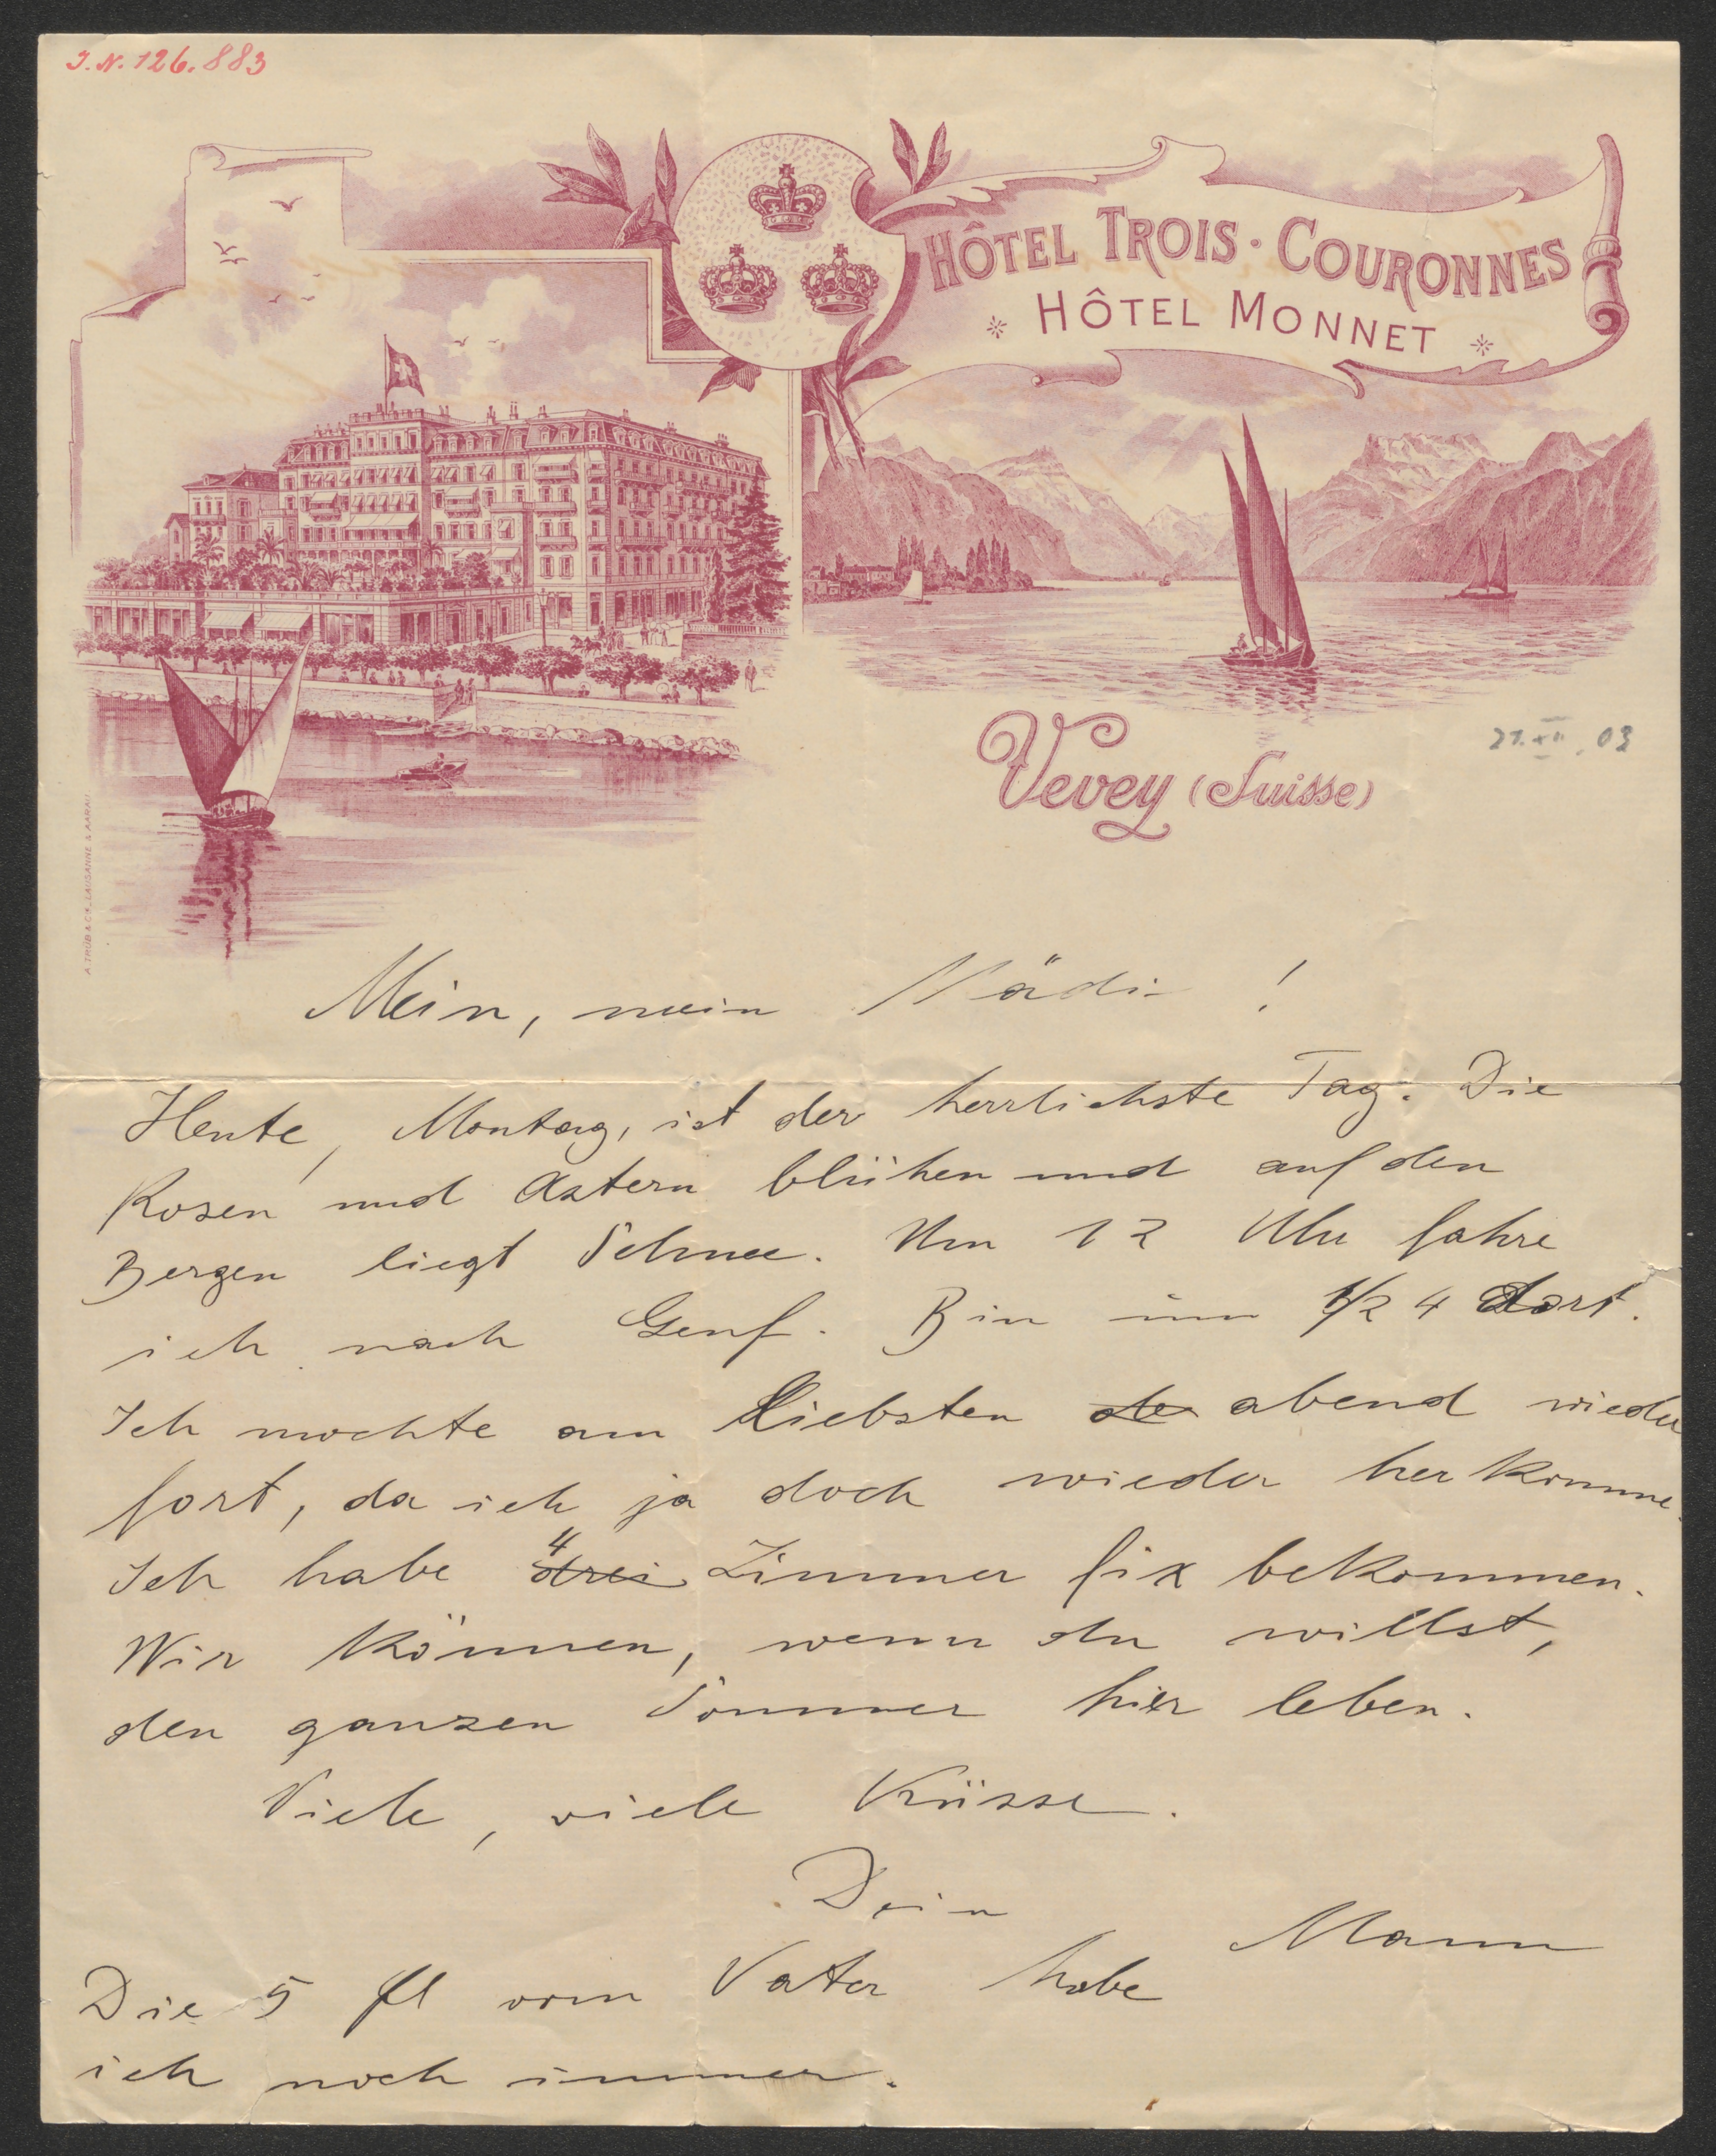 J. N. 126.883
HÔTEL TROIS · COURONNES
HÔTEL MONNET
Vevey (Suisse)
21. XII. 03
A. TRÜB & CIE. LAUSANNE & AARAU
Mein, mein Mädi !
Heute, Montag, ist der herrlichste Tag. Die
Rosen und Astern blühen und auf den
Bergen liegt Schnee. Um 12 Uhr fahre
ich nach Genf. Bin um 1/2 4 dort.
Ich mochte am Liebsten abend wieder
fort, da ich ja doch wieder her komme.
Ich habe 4 drei Zimmer fix bekommen.
Wir können, wenn du willst,
den ganzen Sommer hier leben.
Viele, viele Küsse.
Dein
Mann
Die 5 fl vom Vater habe
ich noch immer.